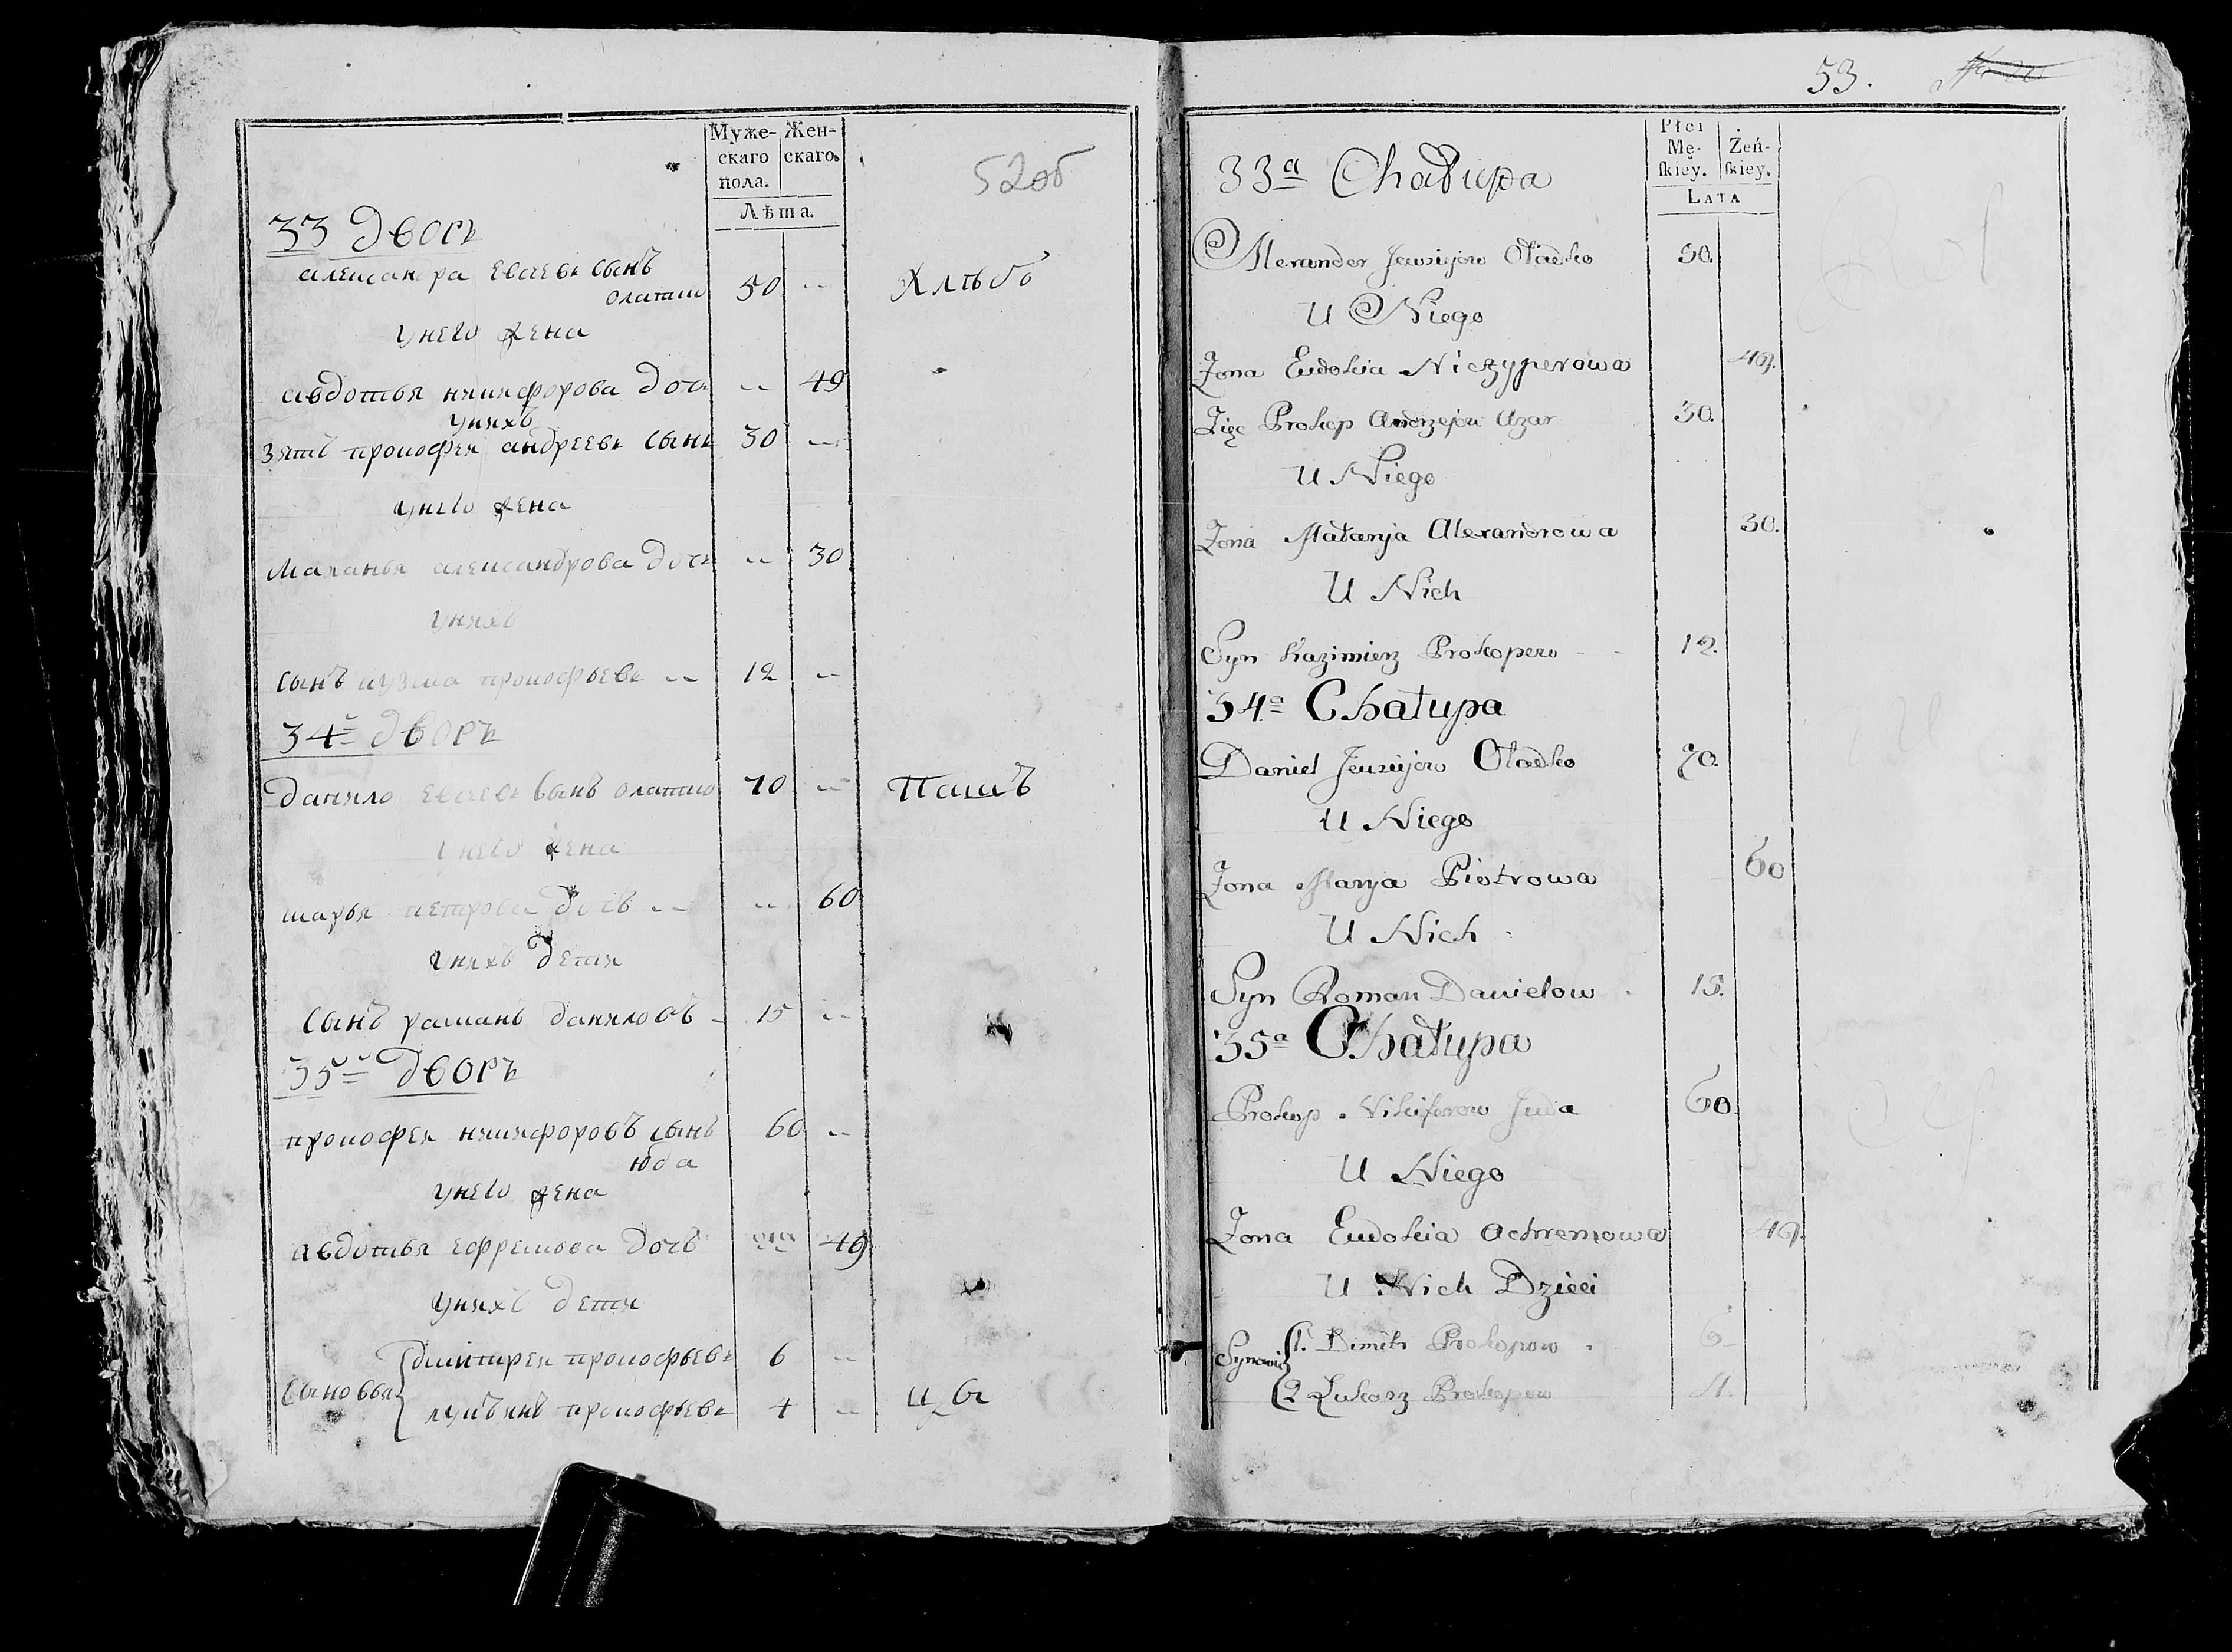 Муже-
скаго
пола.
Жен-
скаго.
Лѣта.
52об
33 дворъ
александра евсеевъ сынъ
олатко 50 --
унего жена
авдотья никифорова дочь -- 49
унихъ
зять прокофеи андреевъ сынъ 30 --
унего жена
маланья александрова дочь -- 30
унихъ
сынъ кузма прокофьевъ -- 12 --
34й дворъ
данило евсеевъ сынъ олатко 70 --
унего жена
марья петрова дочь -- -- 60
унихъ дети
сынъ раманъ даниловъ 15 --
35й дворъ
прокофеи никифоровъ сынъ 60 --
юда
унего жена
авдотья ефремова дочь -- 49
унихъ дети
сыновья
дмитреи прокофьевъ 6 --
лукъянъ прокофьевъ 4 --
53.
Płci
Mę-
skiey.
Żeń-
skiey.
LATA
33a Chałupa
Alexander Jewsiejow Oładko 50.
U Niego
Żona Eudokia Niczyperowa 49.
Zięć Prokop Andrzejow Azar 30.
U Niego
Żona Małanja Alexandrowa 30.
U Nich
Syn Kazimierz Prokopow - - 12.
34a Chałupa
Daniel Jewsiejow Oładko 70.
U Niego
Żona Marya Piotrowa 60
U Nich
Syn Roman Danielow 15.
35a Chałupa
Prokop Nikiforow Juda 60.
U Niego
Żona Eudokia Achremowa 49.
U Nich Dzieci
Synowie
1. Dimitr Prokopow 6
2 Łukasz Prokopow 4.